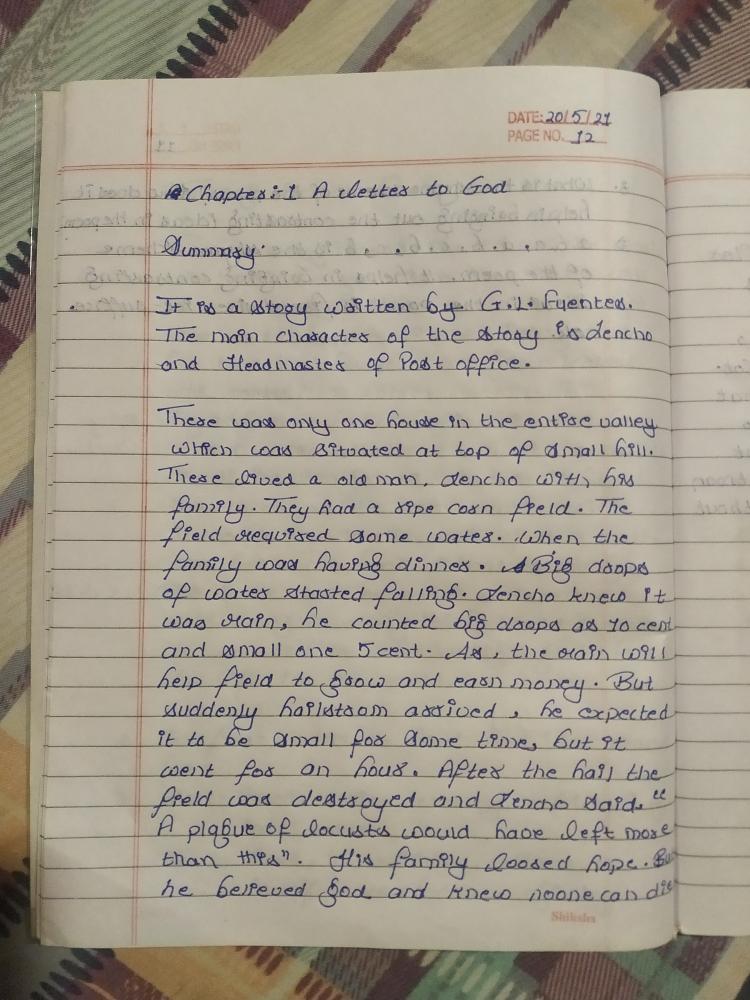 DATE: 20/5/21
PAGE NO. 12
Chapter:-1 A letter to God
Summary:
It is a story written by G.L. Fuentes.
The main character of the story is Lencho
and Headmaster of Post office.
There was only one house in the entire valley
which was situated at top of small hill.
There lived a old man, Lencho with his
family. They had a ripe corn field. The
field required some water. When the
family was having dinner. Big drops
of water started falling. Lencho knew it
was rain, he counted big drops as 10 cent
and small one 5 cent. As, the rain will
help field to grow and earn money. But
suddenly hailstrom arrived, he expected
it to be small for some time, but it
went for an hour. After the hail the
field was destroyed and Lencho said. "
A plague of locusts would have left more
than this". His family loosed hope. But
he believed god and knew noone can die
Shiksha